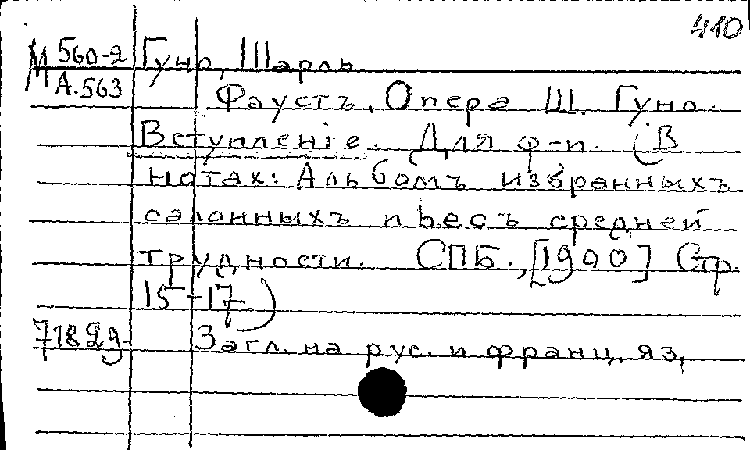 410
М 560-2 Гуно, Шарль
А.563
Фаустъ. Опера Ш. Гуно.
Вступленіе. Для ф-п. (В
нотах: Альбомъ избранныхъ
салонныхъ пьесъ средней
трудности. СПБ., [1900] Стр.
15-17)
71829 Загл. на рус. и франц. яз.